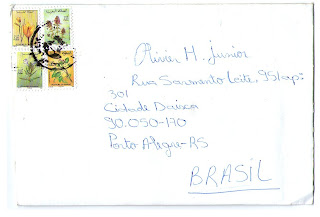 Olivier H. Junior
Rua Sarmento Leite, 951ap:
301
Cidade Baixa
90.050-170
Porto Alegre-RS
BRASIL